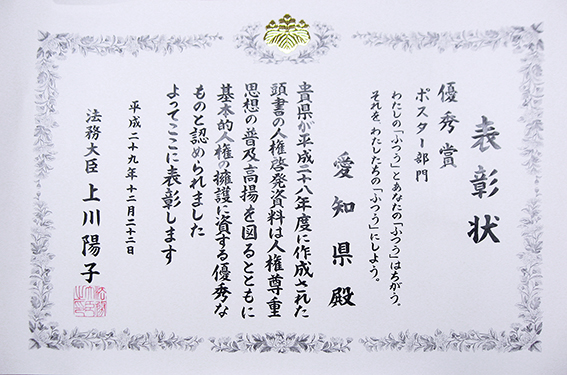 表彰状
優秀賞
ポスター部門
わたしの「ふつう」とあなたの「ふつう」はちがう。
それを、わたしたちの「ふつう」にしよう。
愛知県殿
貴県が平成二十八年度に作成された
頭書の人権啓発資料は人権尊重
思想の普及高揚を図るとともに
基本的人権の擁護に資する優秀な
ものと認められました
よってここに表彰します
平成二十九年十二月二十二日
法務大臣 上川陽子